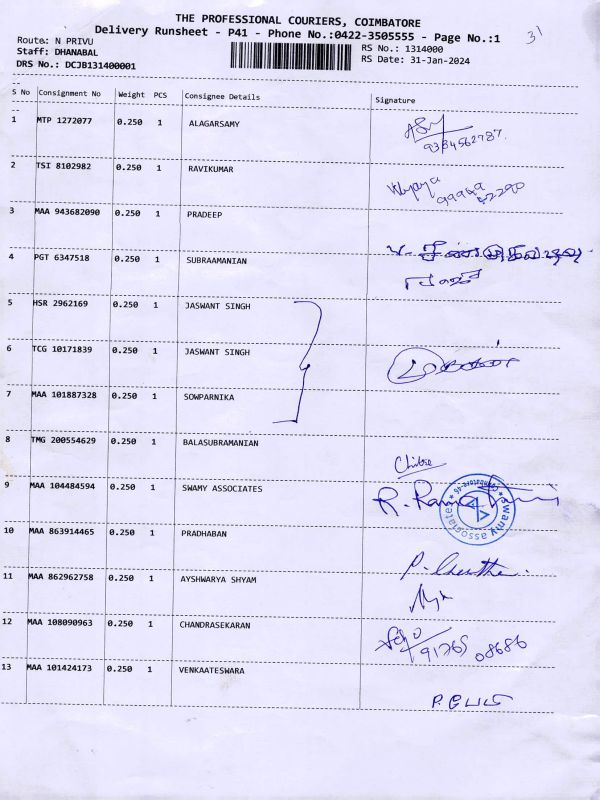 THE PROFESSIONAL COURIERS, COIMBATORE
Delivery Runsheet - P41 - Phone No.:0422-3505555 - Page No.:1
31
Route: N PRIVU
RS No.: 1314000
Staff: DHANABAL
RS Date: 31-Jan-2024
DRS No.: DCJB131400001
S No Consignment No Weight PCS Consignee Details Signature
1 MTP 1272077 0.250 1 ALAGARSAMY
2 TSI 8102982 0.250 1 RAVIKUMAR
3 MAA 943682090 0.250 1 PRADEEP
4 PGT 6347518 0.250 1 SUBRAAMANIAN
5 HSR 2962169 0.250 1 JASWANT SINGH
6 TCG 10171839 0.250 1 JASWANT SINGH
7 MAA 101887328 0.250 1 SOWPARNIKA
8 TMG 200554629 0.250 1 BALASUBRAMANIAN
9 MAA 104484594 0.250 1 SWAMY ASSOCIATES
swamy associates
10 MAA 863914465 0.250 1 PRADHABAN
11 MAA 862962758 0.250 1 AYSHWARYA SHYAM
12 MAA 108090963 0.250 1 CHANDRASEKARAN
91765 08686
13 MAA 101424173 0.250 1 VENKAATESWARA